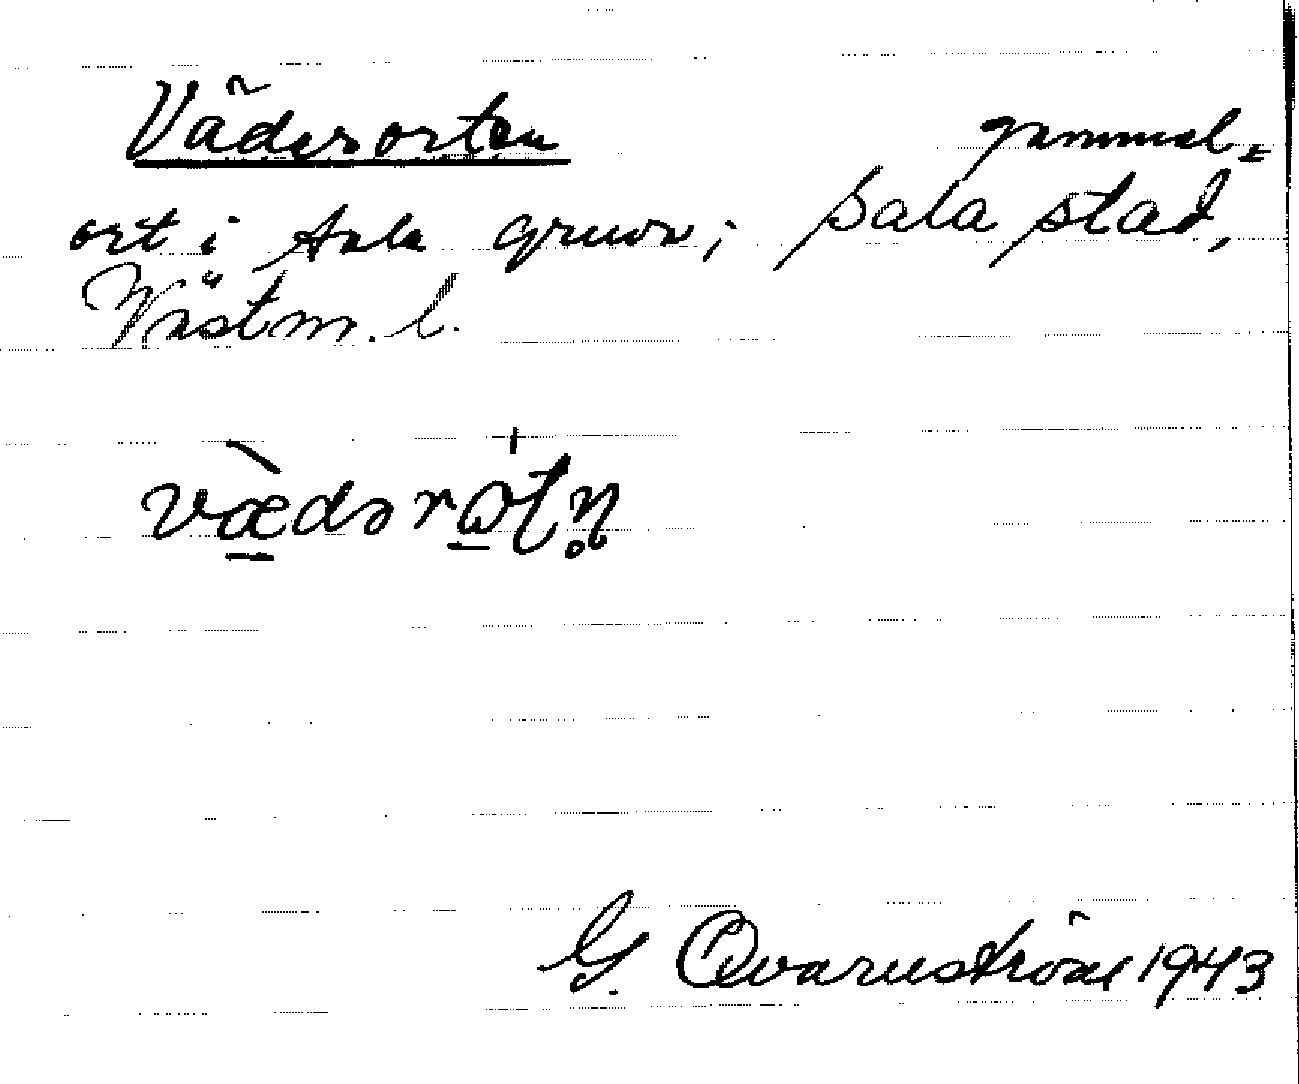 Väderorten gammal=
ort i Sala gruva; Sala stad,
Västm. l.
væ̀dərɷtn̥
G. Qvarnström 1943